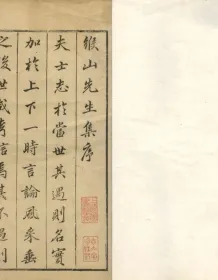 緱山先生集序
夫士志於當世其遇則名實
加於上下一時言論風采垂
之後世或考言焉其不遇則